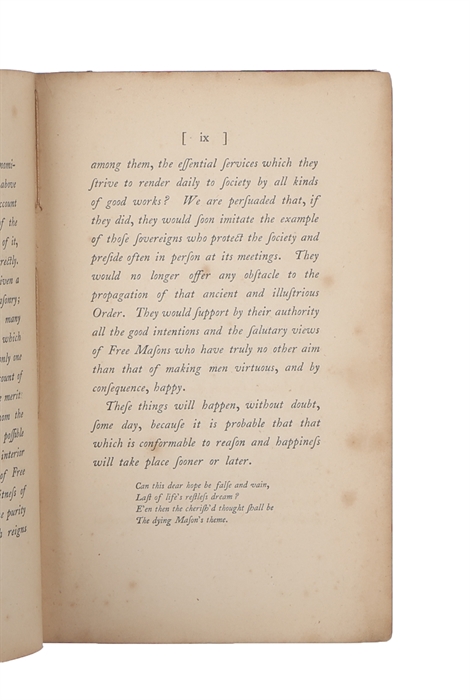 nomi-
above
account
of the
of it,
rectly.
given a
asonry;
many
which
only one
count of
e merit
rom the
possible
interior
of Free
fitness of
e purity
h reigns
[ ix ]
among them, the eſſential ſervices which they
ſtrive to render daily to ſociety by all kinds
of good works? We are perſuaded that, if
they did, they would ſoon imitate the example
of thoſe ſovereigns who protect the ſociety and
preſide often in perſon at its meetings. They
would no longer offer any obſtacle to the
propagation of that ancient and illuſtrious
Order. They would ſupport by their authority
all the good intentions and the ſalutary views
of Free Maſons who have truly no other aim
than that of making men virtuous, and by
conſequence, happy.
Theſe things will happen, without doubt,
ſome day, becauſe it is probable that that
which is conformable to reaſon and happineſs
will take place ſooner or later.
Can this dear hope be falſe and vain,
Laſt of life's reſtleſs dream?
E'en then the cheriſh'd thought ſhall be
The dying Maſon's theme.